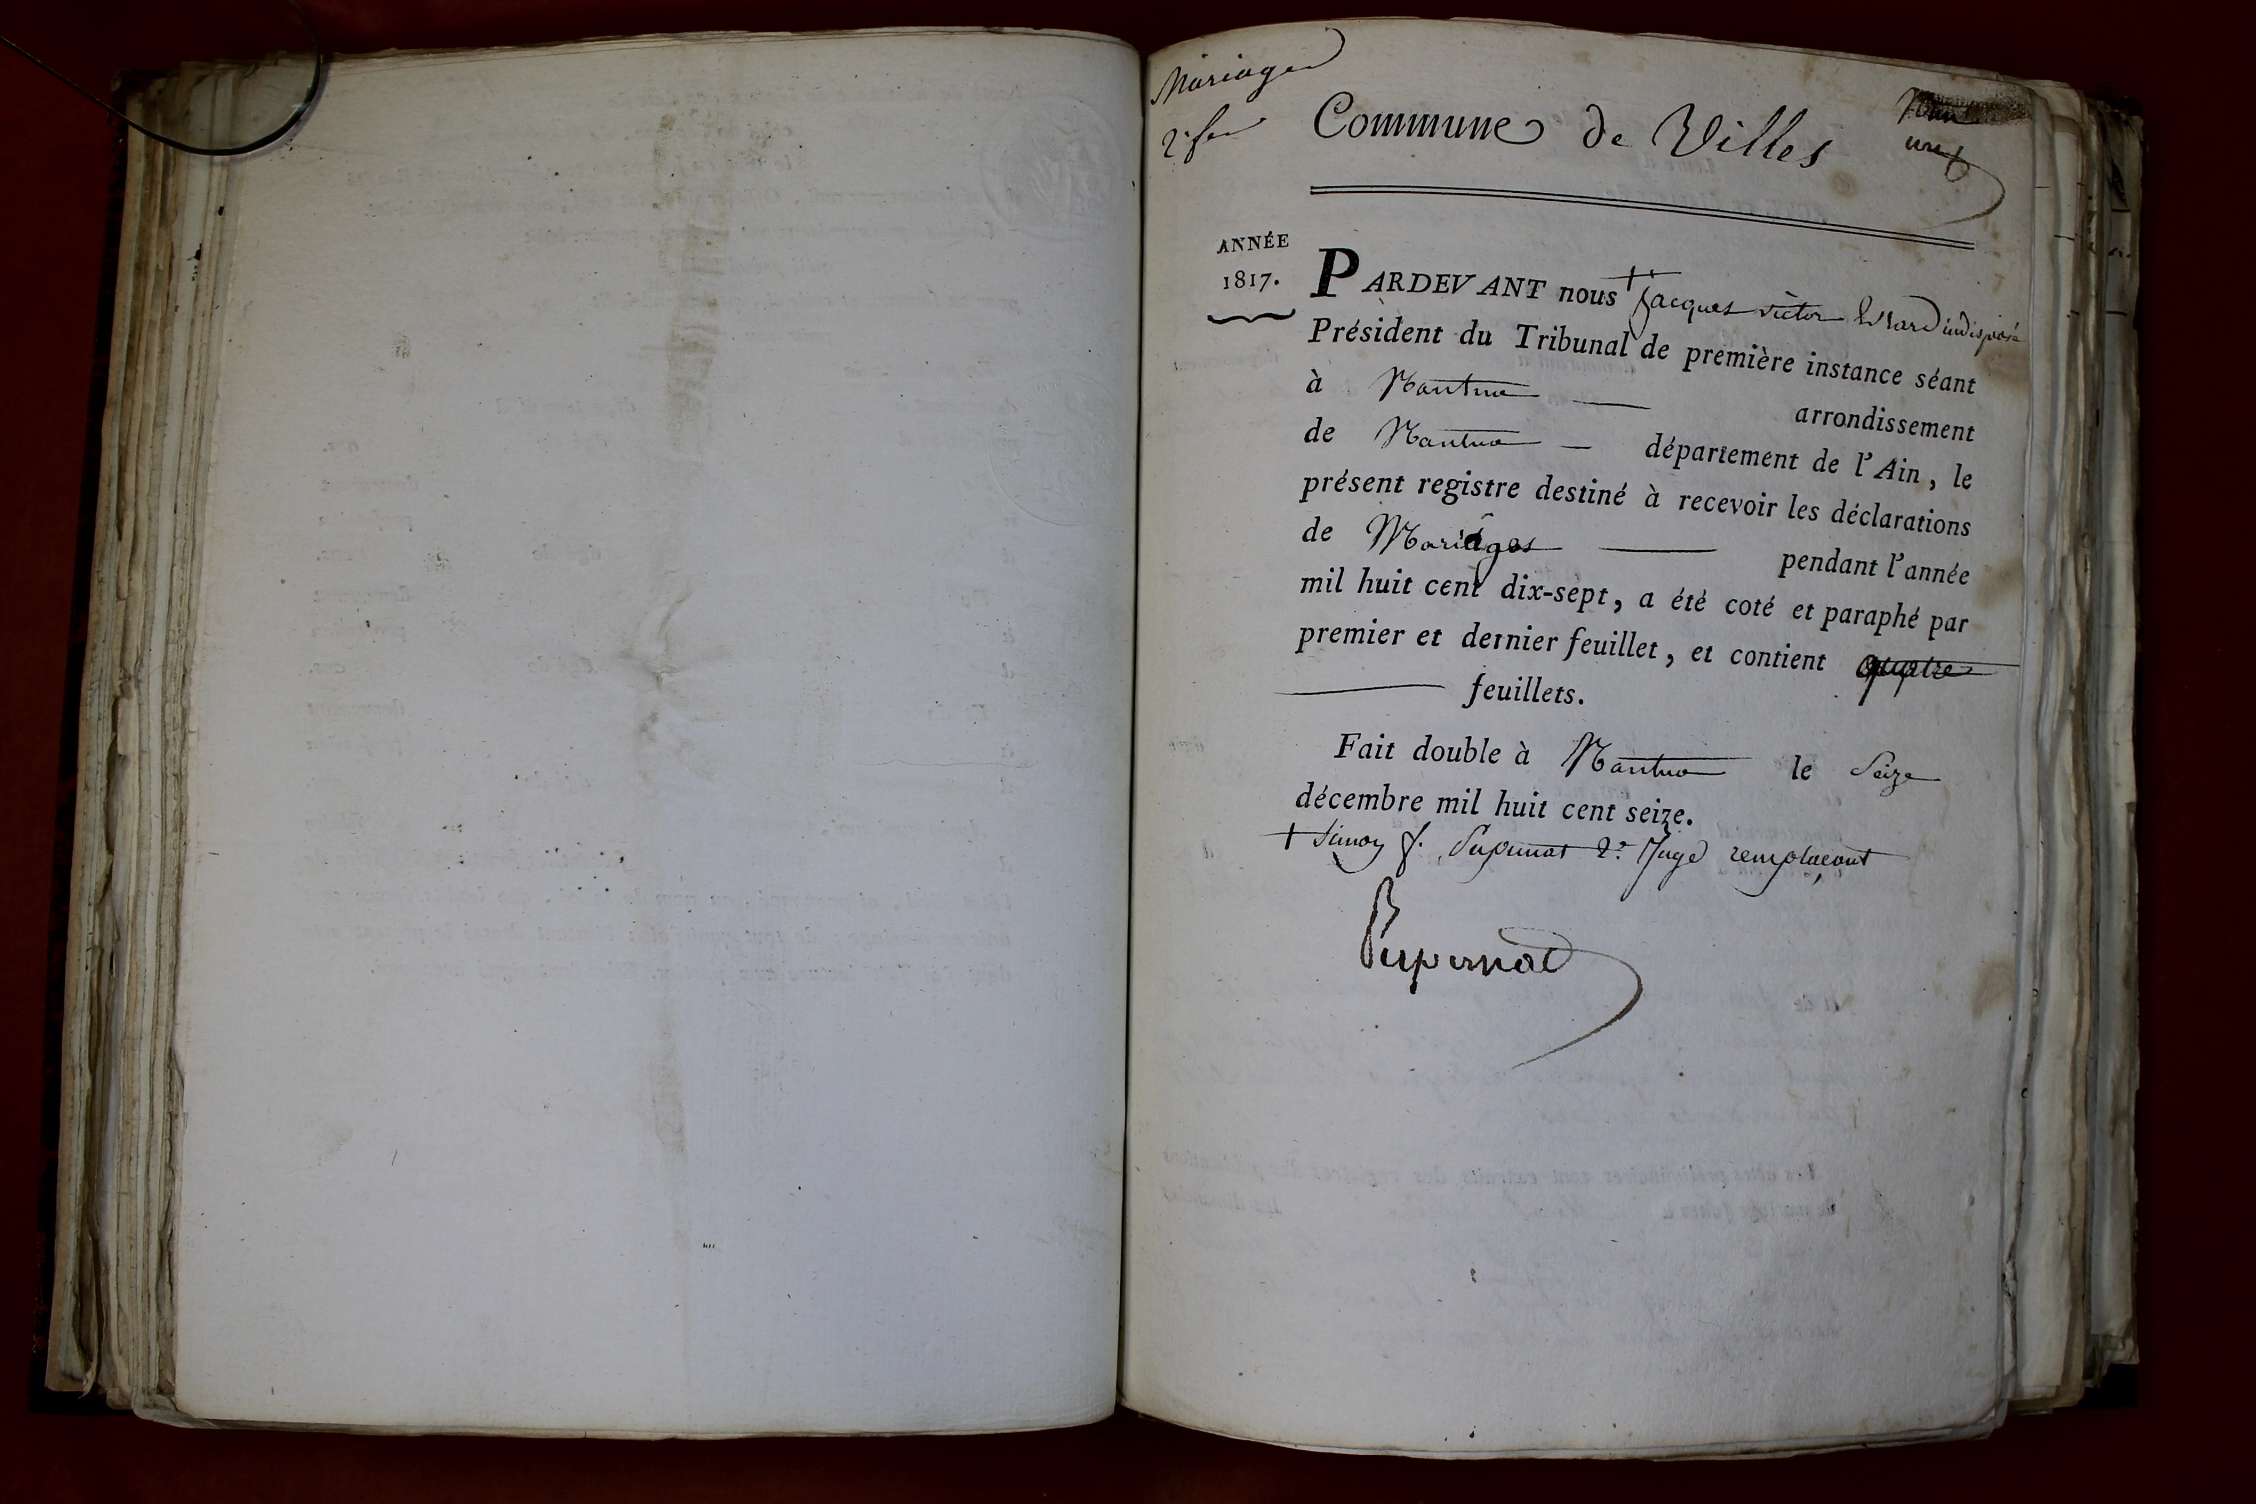 Mariages
2. feu
Commune de Villes
une
ANNÉE
1817.
PARDEVANT nous + Jacques victor indisposé
Président du Tribunal de première instance séant
à Nantua arrondissement
de Nantua département de l'Ain, le
présent registre destiné à recevoir les déclarations
de Mariages pendant l'année
mil huit cent dix-sept, a été coté et paraphé par
premier et dernier feuillet, et contient quatre
feuillets.
Fait double à Nantua le Seize
décembre mil huit cent seize.
+ Simon f. Pupunat 2e. Juge remplaçant
Pupunat